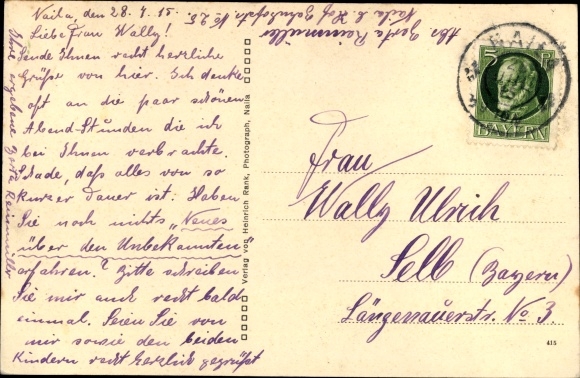 Naila, den 28.7.15.
Liebe Frau Wally!
Sende Ihnen recht herzliche
Grüße von hier. Ich denke
oft an die paar schönen
Abend-Stunden die ich
bei Ihnen verbrachte.
Schade, daß alles von so
kurzer Dauer ist. Haben
Sie noch nichts „Neues
über den Unbekannten"
erfahren? Bitte schreiben
Sie mir auch recht bald
einmal. Seien Sie von
mir sowie den beiden
Kindern recht herzlich gegrüßt
Ihre ergebene Gerta Reinmüller
Abs. Gerta Reinmüller
Naila b. Hof Bahnhofstr. No 225
Verlag von Heinrich Rank, Photograph, Naila
NAILA
5 P
BAYERN
Frau
Wally Ulrich
Selb (Bayern)
Längenauerstr. No 3.
415